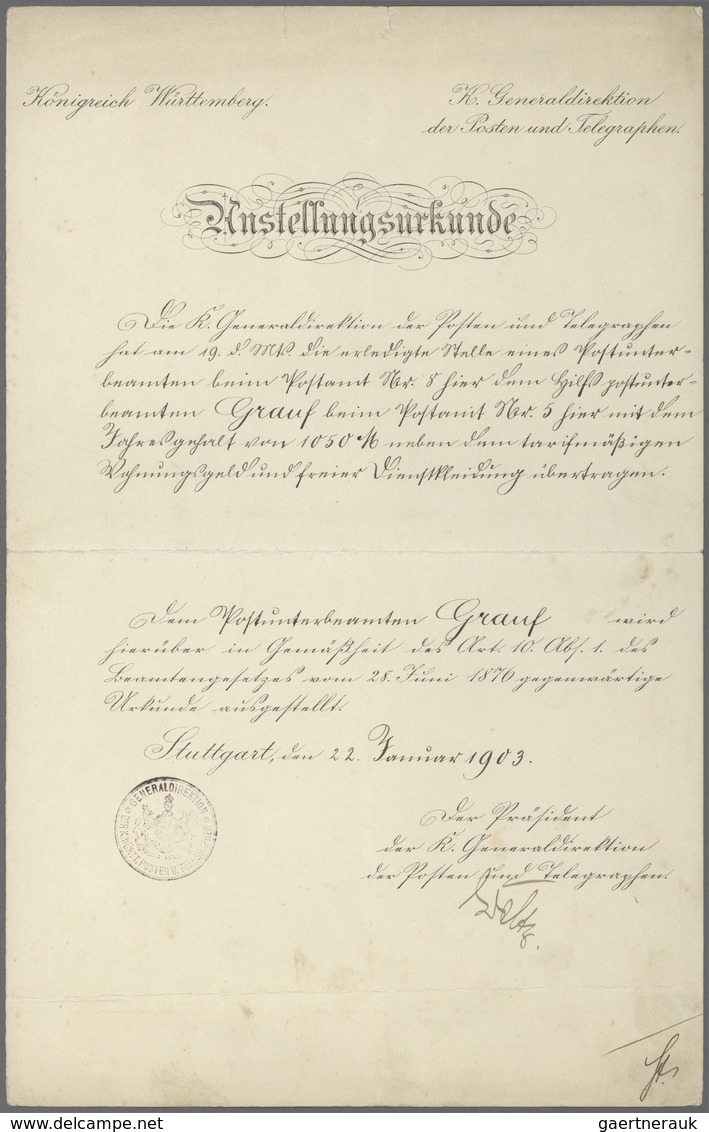 Königreich Württemberg.
K. Generaldirektion
der Posten und Telegraphen.
Anstellungsurkunde
Die K. Generaldirektion der Posten und Telegraphen
hat am 19. d. Mts. die erledigte Stelle eines Postunter-
beamten beim Postamt Nr. 8 hier dem Hilfspostunter-
beamten Grauf beim Postamt Nr. 5 hier mit dem
Jahresgehalt von 1050 M neben dem tarifmäßigen
Wohnungsgeld und freier Dienstkleidung übertragen.
Dem Postunterbeamten Grauf wird
hierüber in Gemäßheit des Art. 10. Abs. 1. des
Beamtengesetzes vom 28. Juni 1876 gegenwärtige
Urkunde ausgestellt.
Stuttgart, den 22. Januar 1903.
GENERALDIREKTION
POSTEN U.
Der Präsident
der K. Generaldirektion
der Posten und Telegraphen.
gaertnerauk